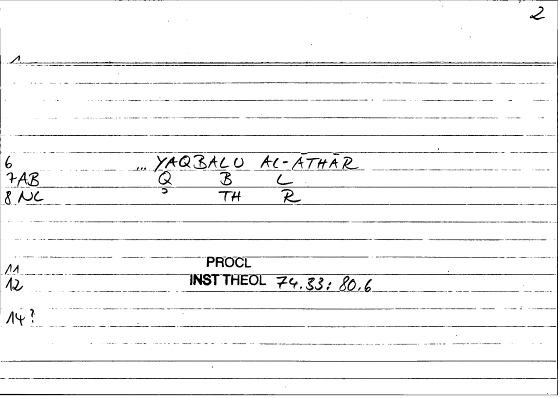 2
1
6 ... YAQBALU AL-ĀTHĀR
7AB Q B L
8 NC ʾ TH R
11 PROCL
12 INST THEOL 74.33: 80.6
14?